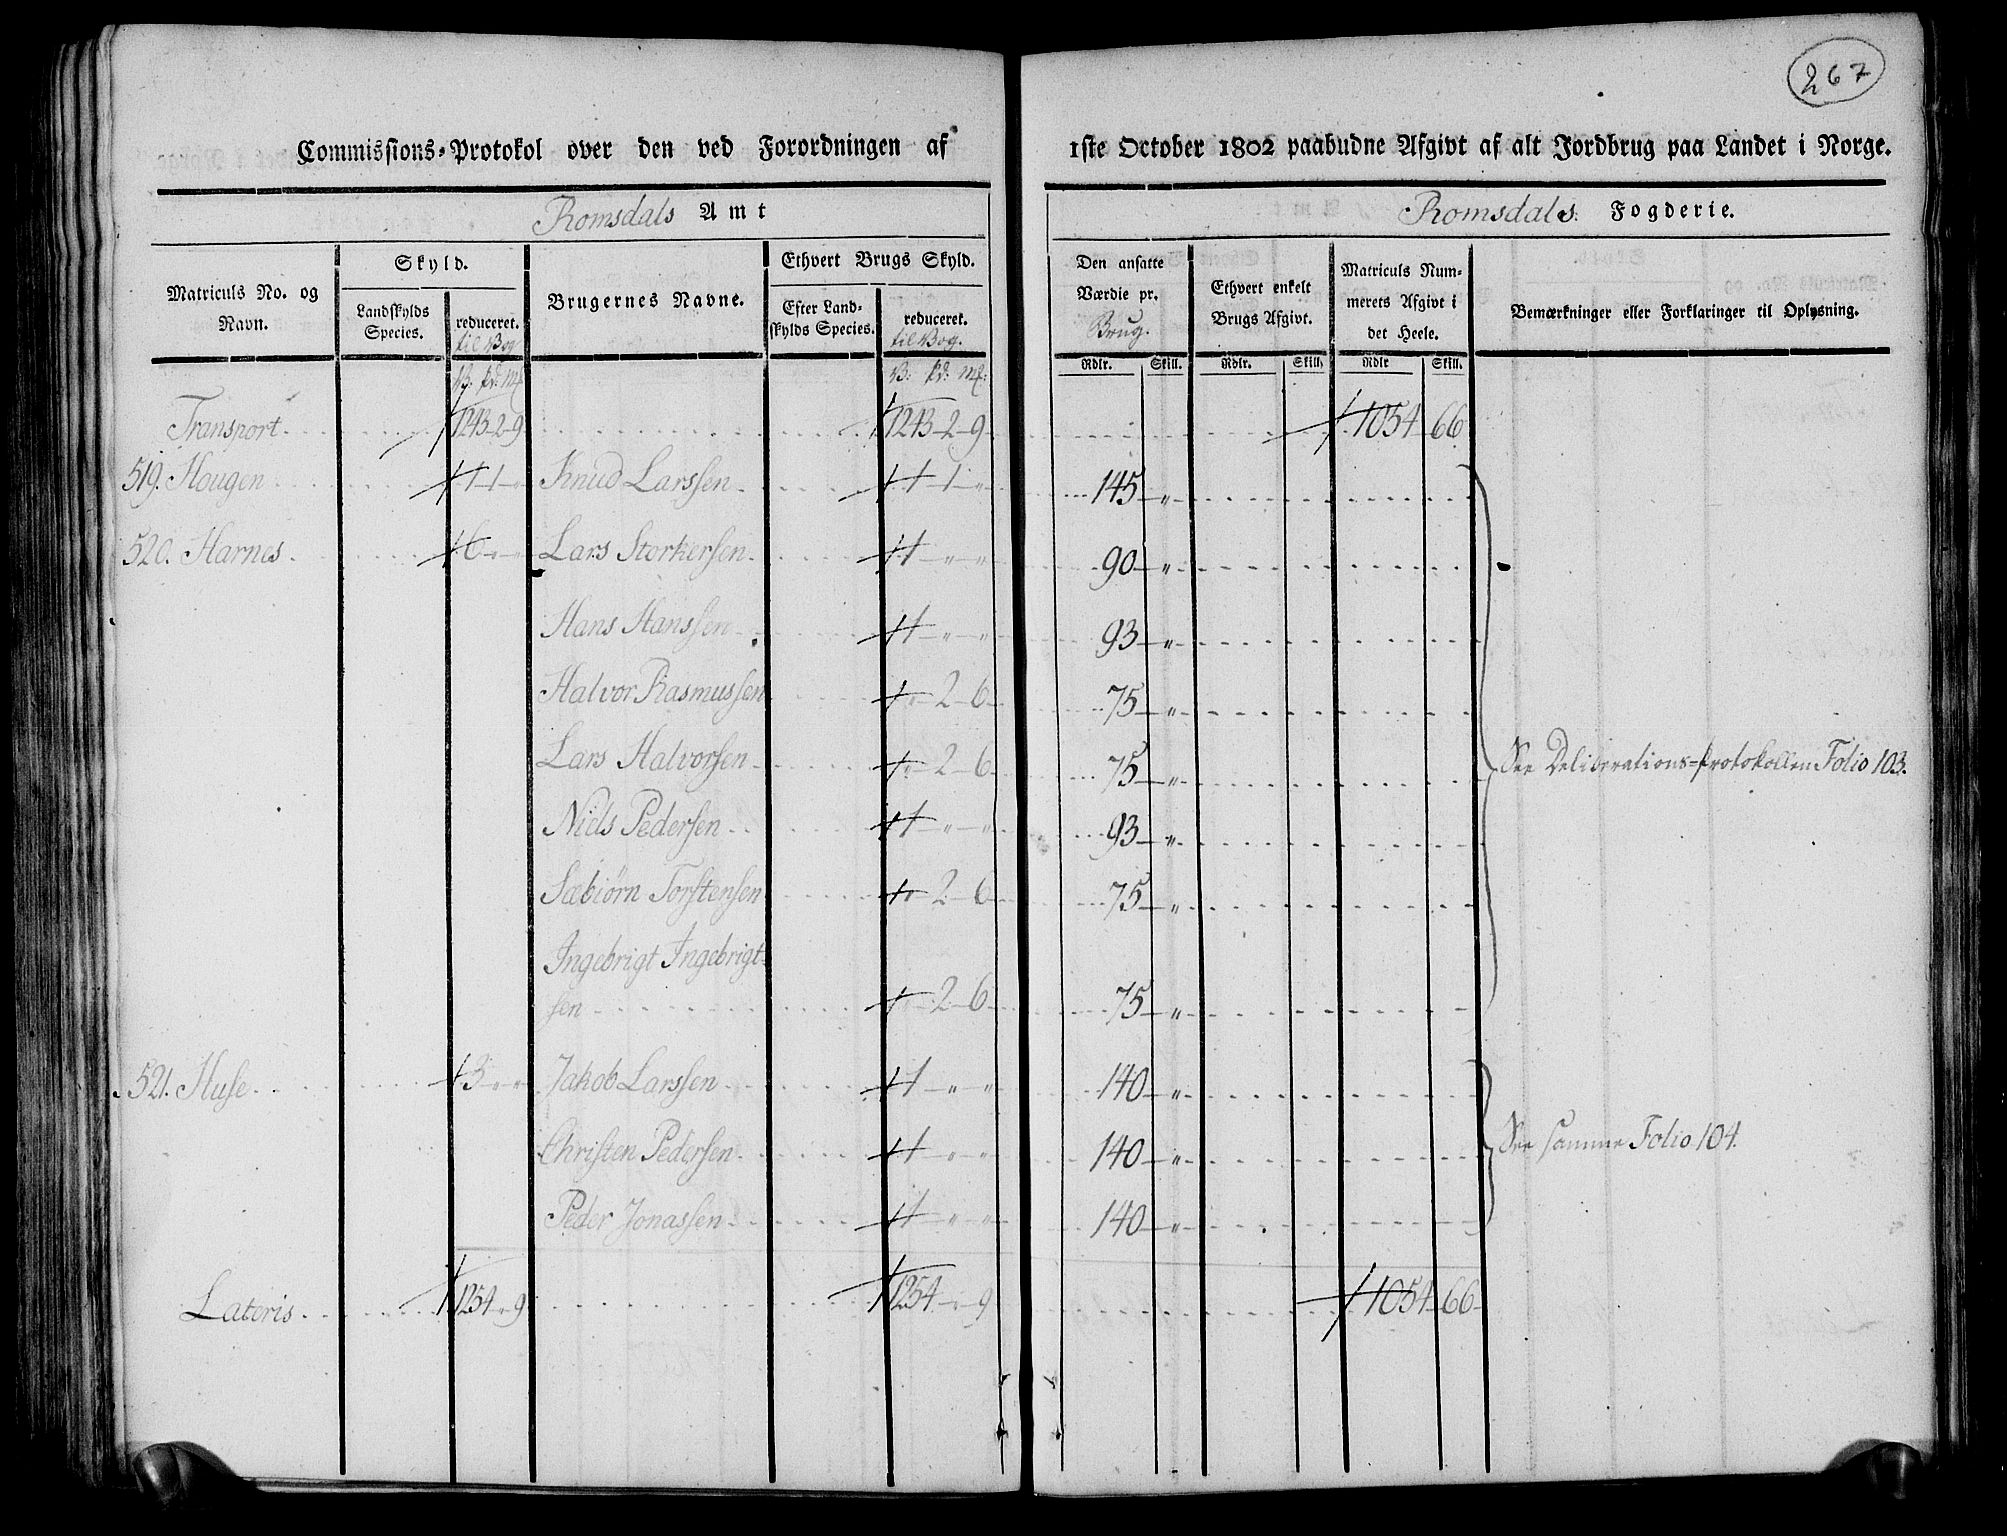 267
Commissions-Protokol over den ved Forordningen af 1ste October 1802 paabudne Afgivt af alt Jordbrug paa Landet i Norge.
Romsdals Amt Romsdals Fogderie.
Matriculs No. og Navn.
Skyld.
Landskylds Species.
reduceret. til Bog
Brugernes Navne.
Ethvert Brugs Skyld.
Efter Landskylds Species.
reduceret. til Bog.
Den ansatte Værdie pr. Brug.
Ethvert enkelt Brugs Afgivt.
Matriculs Nummerets Afgivt i det Heele.
Bemærkninger eller Forklaringer til Oplysning.
Rdlr. Skill. Rdlr. Skill. Rdlr Skill.
Transport 1243-2-9 1243-2-9 1054 66
519. Hougen 1-1-" Knud Larssen 1-1-" 145-"
520. Harnes 6-"-" Lars Storkersen 1-"-" 90-"
Hans Hanssen 1-"-" 93-"
Halvor Rasmussen "-2-6 75-"
Lars Halvorsen "-2-6 75-"
See Deliberations-Protokollen Folio 103.
Niels Pedersen 1-"-" 93-"
Sæbiörn Torstensen "-2-6 75-"
Ingebrigt Ingebrigt-
sen "-2-6 75-"
521. Huse 3-"-" Jakob Larssen 1-"-" 140-"
Christen Pedersen 1-"-" 140-" See samme Folio 104.
Peder Jonassen 1-"-" 140-"
Lateris 1254-"-9 1254-"-9 1054-66